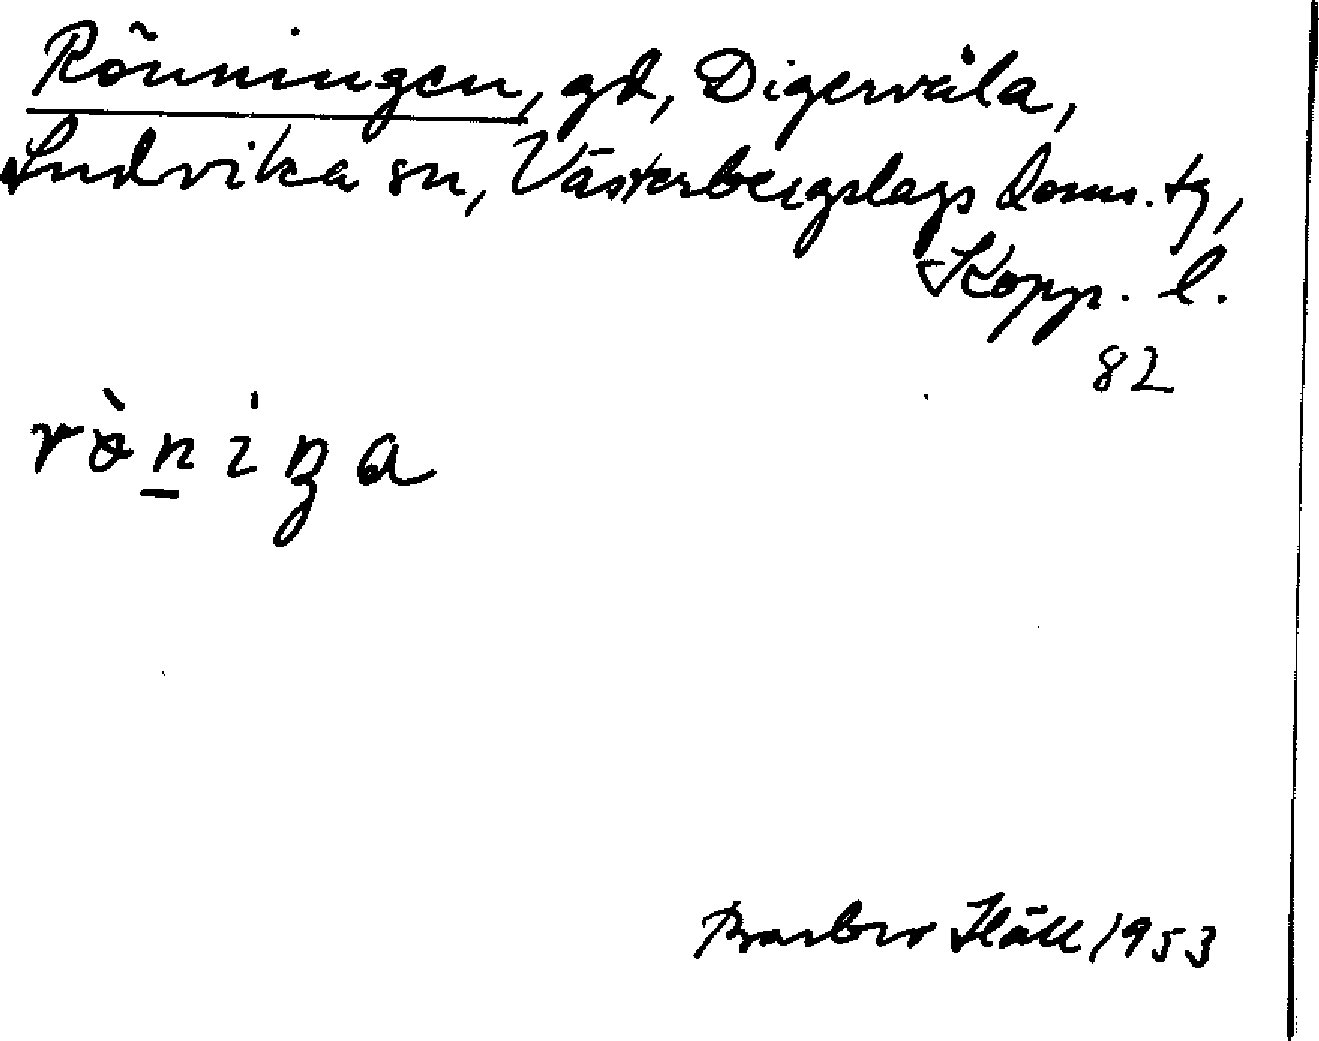 Rönningen, gd, Digerväla,
Ludvika sn, Västerbergslags doms. tg,
Kopp. l.
82
rò̱niŋa
1953